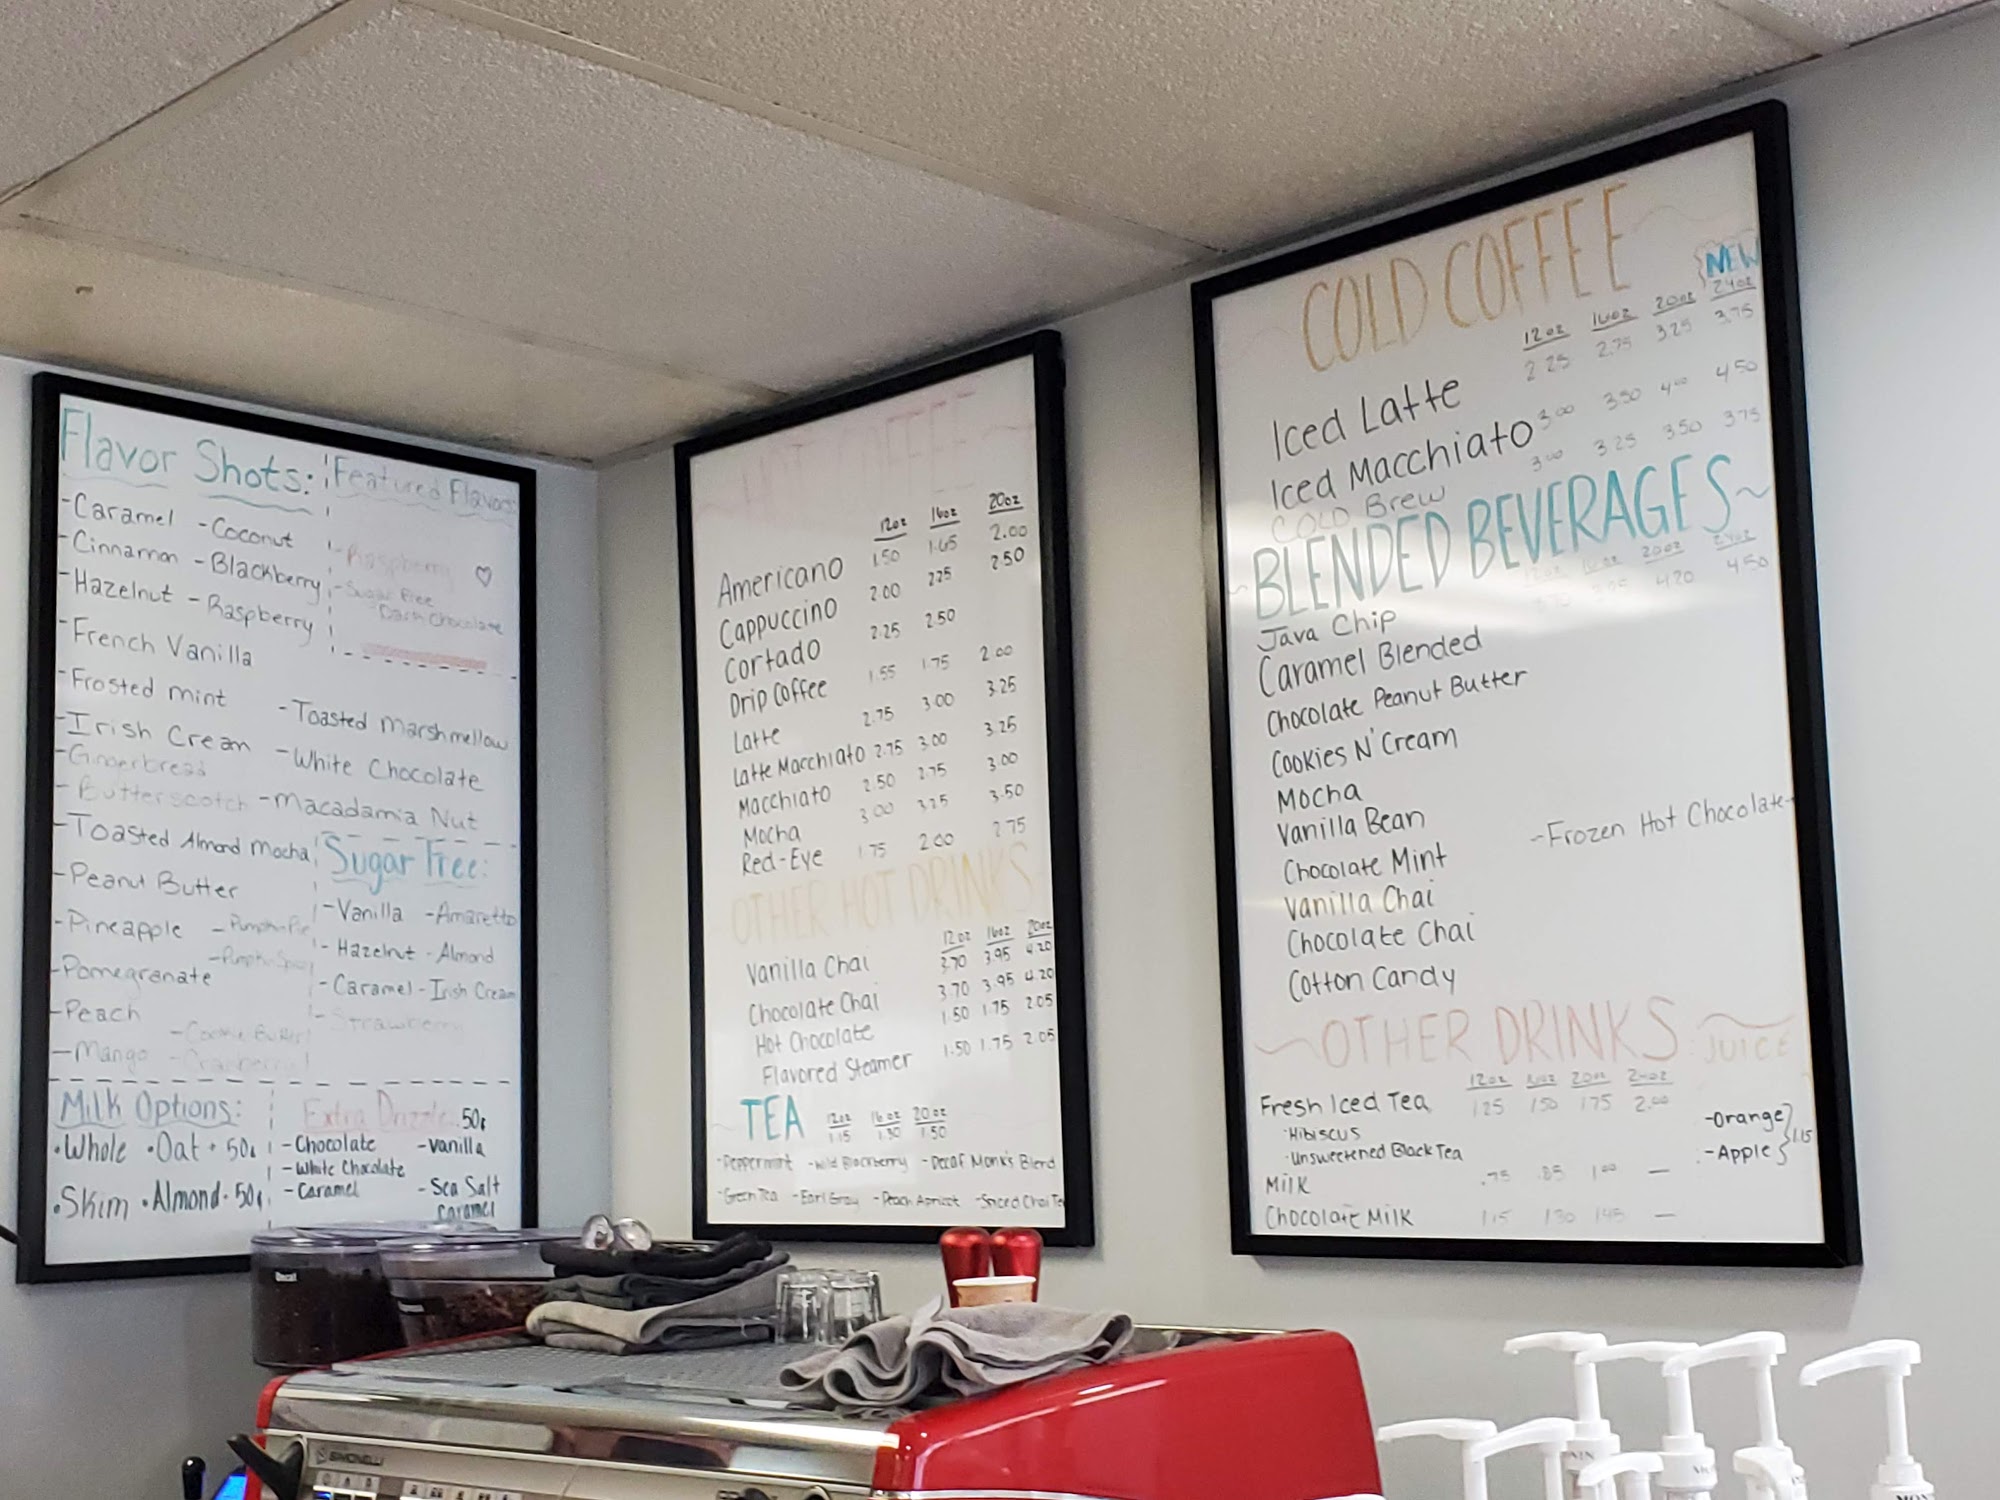 Flavor Shots:
Featured Flavors:
-Caramel -Coconut
-Cinnamon -Blackberry
-Hazelnut -Raspberry
-French Vanilla
-Raspberry
-Sugar Free
Dark Chocolate
-Frosted mint
-Irish Cream
-Gingerbread
-Butterscotch
-Toasted Marshmellow
-White Chocolate
-Macadamia Nut
-Toasted Almond Mocha
-Peanut Butter
-Pineapple -Pumpkin Pie
-Pomegranate -Pumpkin Spice
-Peach
-Mango -Cranberry
Sugar Free:
-Vanilla -Amaretto
-Hazelnut -Almond
-Caramel -Irish Cream
-Strawberry
Milk Options:
•Whole •Oat + 50¢
•Skim •Almond • 50¢
Extra Drizzle .50¢
-Chocolate -Vanilla
-White Chocolate
-Caramel -Sea Salt
Caramel
HOT COFFEE
12oz 16oz 20oz
Americano 1.50 1.65 2.00
Cappuccino 2.00 2.25 2.50
Cortado 2.25 2.50
Drip Coffee 1.55 1.75 2.00
Latte 2.75 3.00 3.25
Latte Macchiato 2.75 3.00 3.25
Macchiato 2.50 2.75 3.00
Mocha 3.00 3.25 3.50
Red-Eye 1.75 2.00 2.75
OTHER HOT DRINKS
12oz 16oz 20oz
Vanilla Chai 3.70 3.95 4.20
Chocolate Chai 3.70 3.95 4.20
Hot Chocolate 1.50 1.75 2.05
Flavored Steamer 1.50 1.75 2.05
TEA 12oz 16oz 20oz
1.15 1.30 1.50
-Peppermint -Wild Blackberry -Decaf Monk's Blend
-Green Tea -Earl Gray -Peach Apricot -Spiced Chai Tea
COLD COFFEE
NEW
12oz 16oz 20oz 24oz
Iced Latte 2.25 2.75 3.25 3.75
Iced Macchiato 3.00 3.50 4.00 4.50
Cold Brew 3.00 3.25 3.50 3.75
BLENDED BEVERAGES
12oz 16oz 20oz 24oz
3.70 3.95 4.20 4.50
Java Chip
Caramel Blended
Chocolate Peanut Butter
Cookies N' Cream
Mocha
Vanilla Bean
Chocolate Mint
-Frozen Hot Chocolate
Vanilla Chai
Chocolate Chai
Cotton Candy
OTHER DRINKS
JUICE
12oz 16oz 20oz 24oz
Fresh Iced Tea 1.25 1.50 1.75 2.00
•Hibiscus
•Unsweetened Black Tea
-Orange
-Apple
1.15
Milk .75 .85 1.00 —
Chocolate Milk 1.15 1.30 1.45 —
SIMONELLI